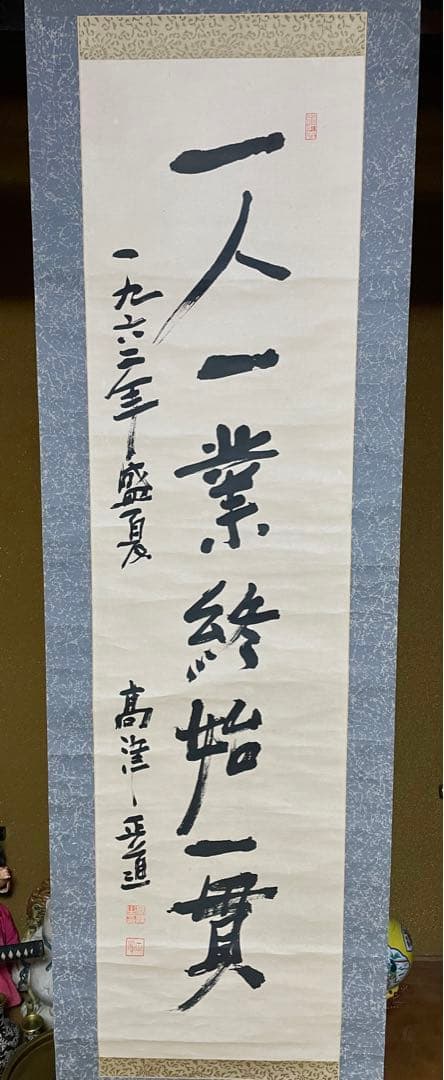 一人一業終始一貫
一九六二年盛夏
高津正道